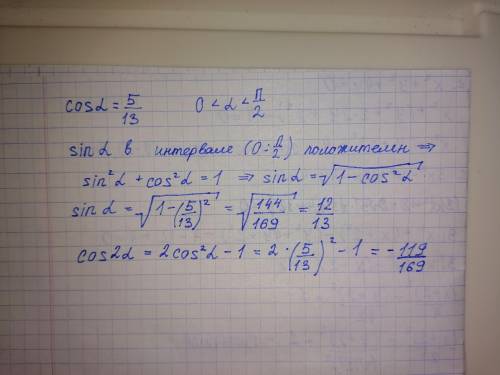 cosα = 5/13    0 < α < П/2
sin α в интервале (0 ÷ П/2) положителен ⇒
sin²α + cos²α = 1 ⇒ sinα = √(1 - cos²α)
sinα = √(1 - (5/13)²) = √(144/169) = 12/13
cos2α = 2cos²α - 1 = 2 · (5/13)² - 1 = - 119/169